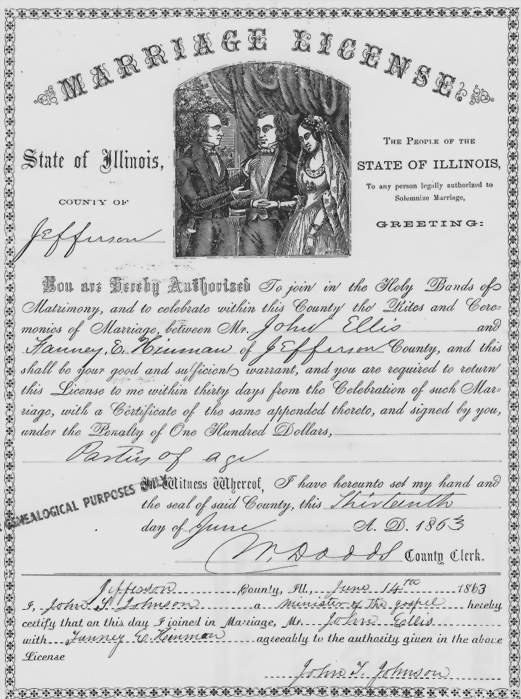 MARRIAGE LICENSE.
State of Illinois,
COUNTY OF
Jefferson
THE PEOPLE OF THE
STATE OF ILLINOIS,
To any person legally authorized to
Solemnize Marriage,
GREETING:
You are Hereby Authorized To join in the Holy Bands of
Matrimony, and to celebrate within this County the Rites and Cere-
monies of Marriage, between Mr. John Ellis and
Fanney E. Hinman of Jefferson County, and this
shall be your good and sufficient warrant, and you are required to return
this License to me within thirty days from the Celebration of such Mar-
riage, with a Certificate of the same appended thereto, and signed by you,
under the Penalty of One Hundred Dollars,
Parties of age
In Witness Whereof, I have hereunto set my hand and
the seal of said County, this Thirteenth
day of June A. D. 1863
W. Dodds County Clerk.
GENEALOGICAL PURPOSES ONLY
Jefferson County, Ill, June 14th 1863
I, John T. Johnson a minister of the gospel hereby
certify that on this day I joined in Marriage, Mr. John Ellis
with Fanney E. Hinman agreeably to the authority given in the above
License
John T. Johnson